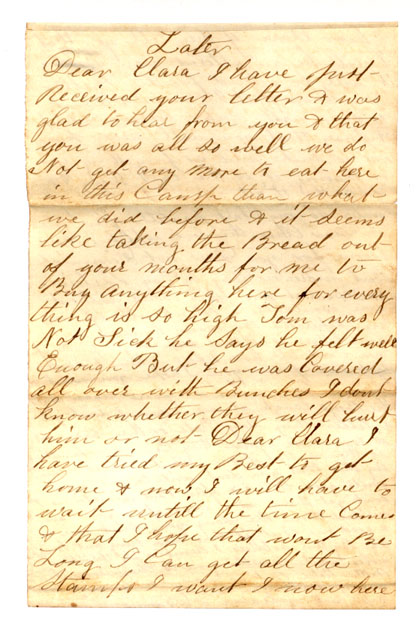 Later
Dear Clara I have just
Received your letter & was
glad to hear from you & that
you was all so well we do
Not get any more to eat here
in this Camp than what
we did before & it seems
like taking the Bread out
of your mouths for me to
Buy anything here for every
thing is so high Tom was
Not Sick he Says he felt well
Enough But he was Covered
all over with Bunches I dont
know whether they will hurt
him or not Dear Clara I
have tried my Best to get
home & now I will have to
wait untill the time Comes
& that I hope that wont Be
Long I Can get all the
Stamps I want I now here